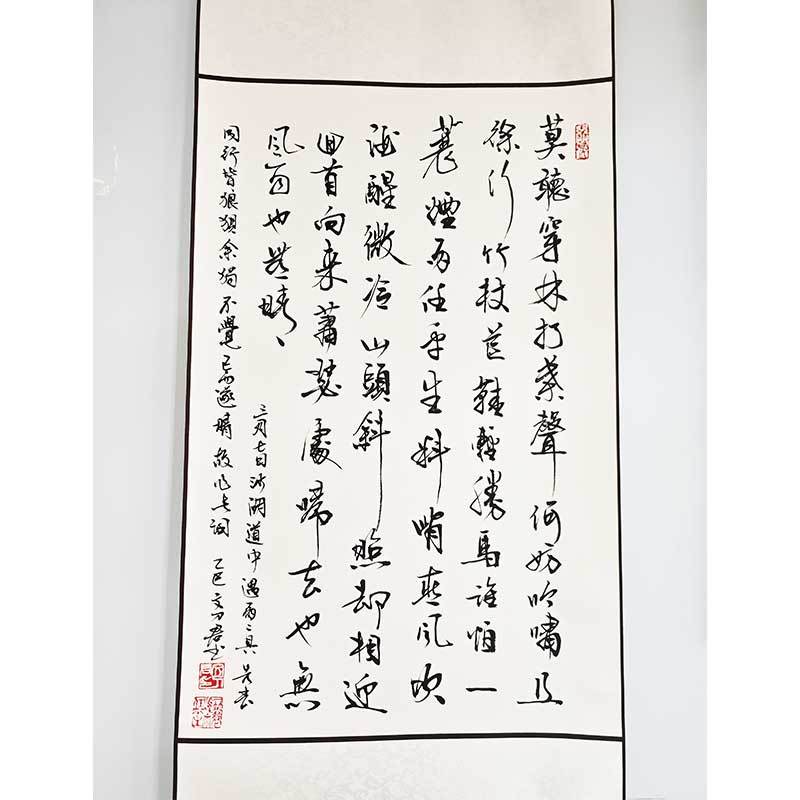 莫聽穿林打葉聲何妨吟嘯且
徐行竹杖芒鞋輕勝馬誰怕一
蓑煙雨任平生料峭春風吹
酒醒微冷山頭斜照却相迎
回首向来蕭瑟處歸去也無
風雨也無晴、
三月七日沙湖道中遇雨、具先去
同行皆狼狽余獨不覺已而遂晴故作此詞 乙巳